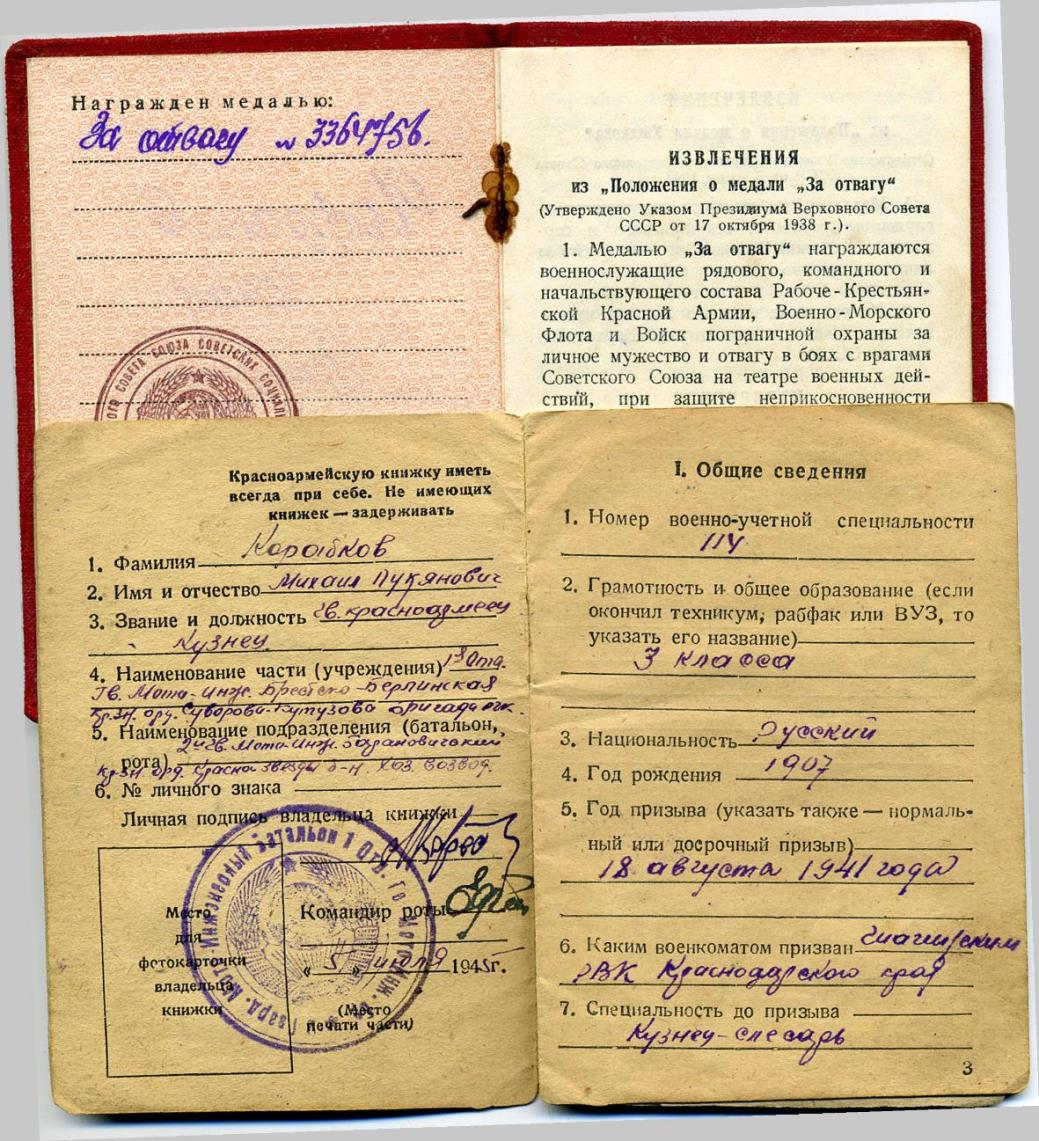 Награжден медалью:
За отвагу № 3364756.
СОВЕТА СОЮЗА СОВЕТСКИХ СОЦИАЛ
ИЗВЛЕЧЕНИЯ
из „Положения о медали „За отвагу“
(Утверждено Указом Президиума Верховного Совета
СССР от 17 октября 1938 г.).
1. Медалью „За отвагу“ награждаются
военнослужащие рядового, командного и
начальствующего состава Рабоче-Крестьян-
ской Красной Армии, Военно-Морского
Флота и Войск пограничной охраны за
личное мужество и отвагу в боях с врагами
Советского Союза на театре военных дей-
ствий, при защите неприкосновенности
Красноармейскую книжку иметь
всегда при себе. Не имеющих
книжек — задерживать
1. Фамилия Корабков
2. Имя и отчество Михаил Лукянович
3. Звание и должность гв. красноармеец
Кузнец
4. Наименование части (учреждения) 1я Отд.
Гв. Мото-инж. Брестско-Берлинская
Кр.Зн. орд. Суворова-Кутузова бригада
5. Наименование подразделения (батальон,
рота) 2й гв. Мото-Инж. Барановичский
Кр.Зн. орд. Красно звезды б-н. Хоз. Взвод.
6. № личного знака
Личная подпись владельца книжки
Место
для
фотокарточки
владельца
книжки
Командир роты
„5“ июля 1945г.
(Место
печати части)
Инженерный Батальон 1 Отд. Гв. Мото Инж.
I. Общие сведения
1. Номер военно-учетной специальности
114
2. Грамотность и общее образование (если
окончил техникум, рабфак или ВУЗ, то
указать его название)
3 класса
3. Национальность Русский
4. Год рождения 1907
5. Год призыва (указать также — нормаль-
ный или досрочный призыв)
18 августа 1941 года
6. Каким военкоматом призван Гиагинским
РВК Краснодарского края
7. Специальность до призыва
Кузнец-слесарь
3